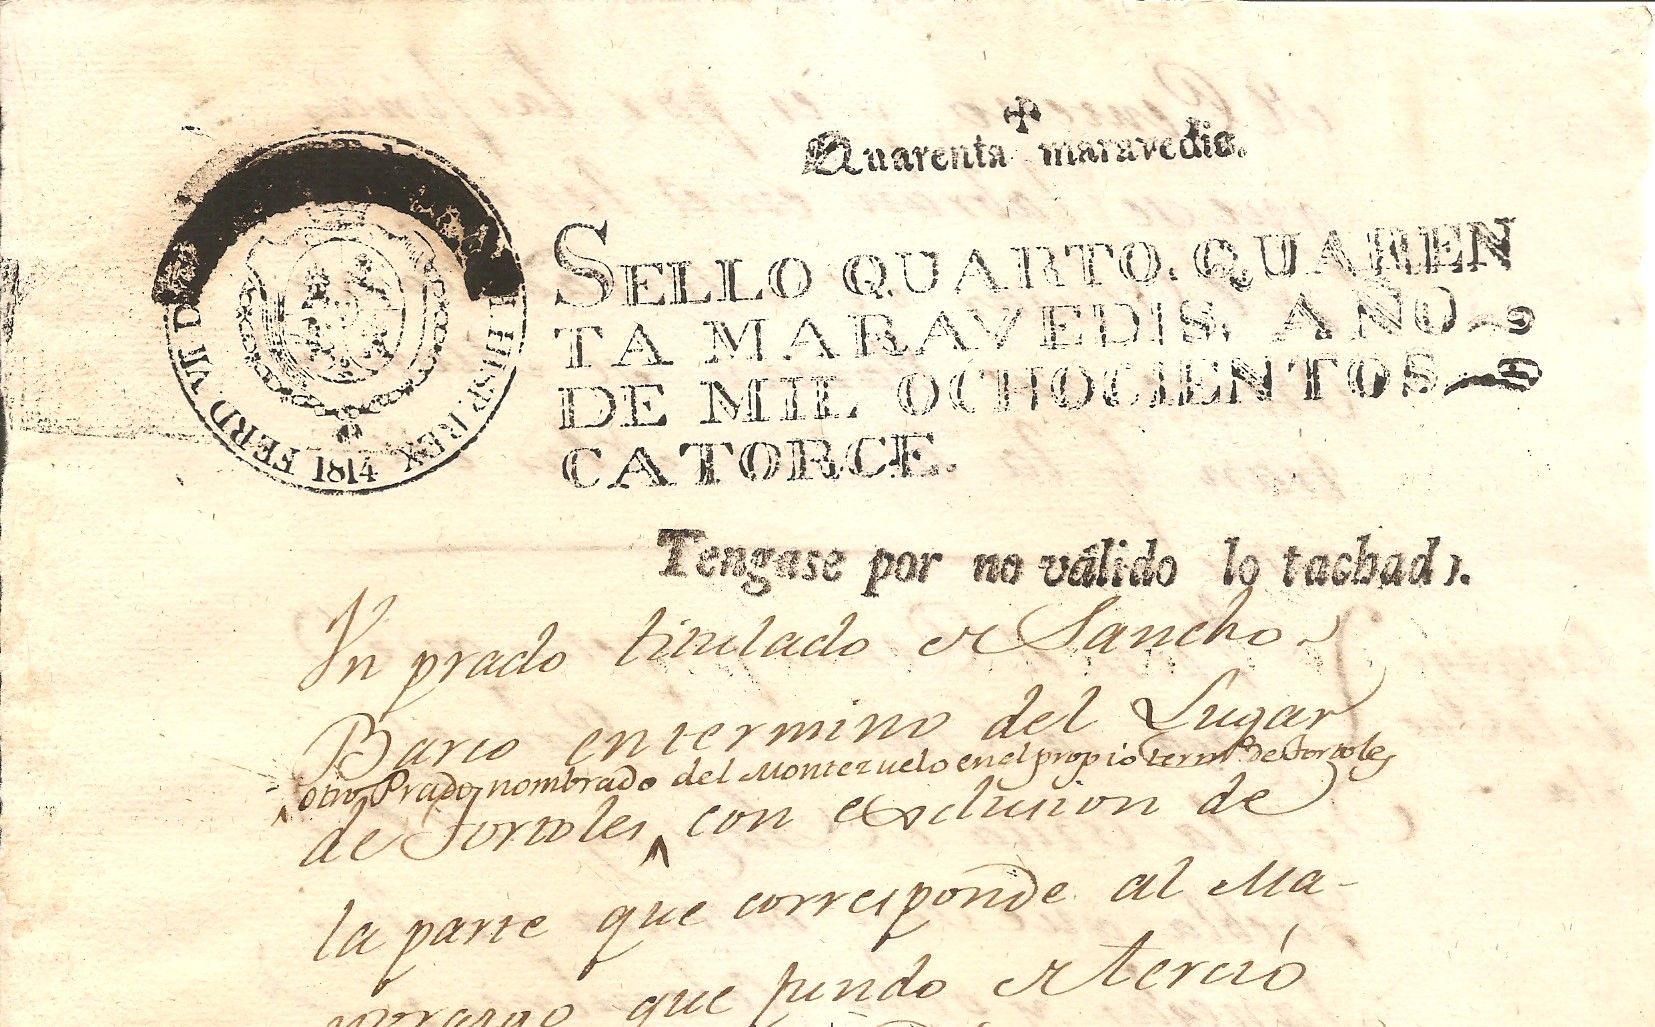 Quarenta maravedis.
SELLO QUARTO, QUAREN
TA MARAVEDIS, AÑO
DE MIL OCHOCIENTOS
CATORCE.
FERD. VI D. HISP. REX
1814
Tengase por no válido lo tachad).
Vn prado titulado de Sancho
Barco en termino del Lugar
otro Prado nombrado del Montezuelo en el propio termº. de Tortoles
de Tortoles con exclusion de
la parte que corresponde al Ma-
yorazgo que fundo el tercio